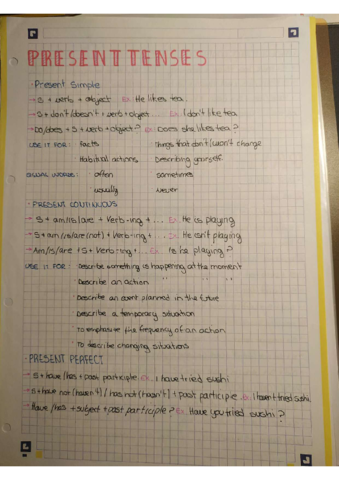 PRESENT TENSES
· Present Simple
→ S + verb + object Ex. He likes tea.
→ S + don't/doesn't + verb + object.... Ex. I don't like tea
→ Do/does + S + verb + object? Ex. Does she likes tea?
USE IT FOR: Facts Things that don't/won't change
Habitual actions Describing yourself.
SIGNAL WORDS: often sometimes
usually never
· PRESENT CONTINUOUS
→ S + am/is/are + Verb-ing + ... Ex. He is playing
→ S + am/is/are (not) + Verb-ing + ... Ex. He isn't playing
→ Am/is/are + S + Verb-ing + ... Ex. Is he playing?
USE IT FOR: Describe something is happening at the moment
· Describe an action " " "
· Describe an event planned in the future
· Describe a temporary situation
· To emphasise the frequency of an action
· To describe changing situations
· PRESENT PERFECT
→ S + have/has + past participle Ex. I have tried sushi
→ S + have not (haven't) / has not (hasn't) + past participle Ex. I haven't tried sushi
→ Have/has + subject + past participle? Ex. Have you tried sushi?